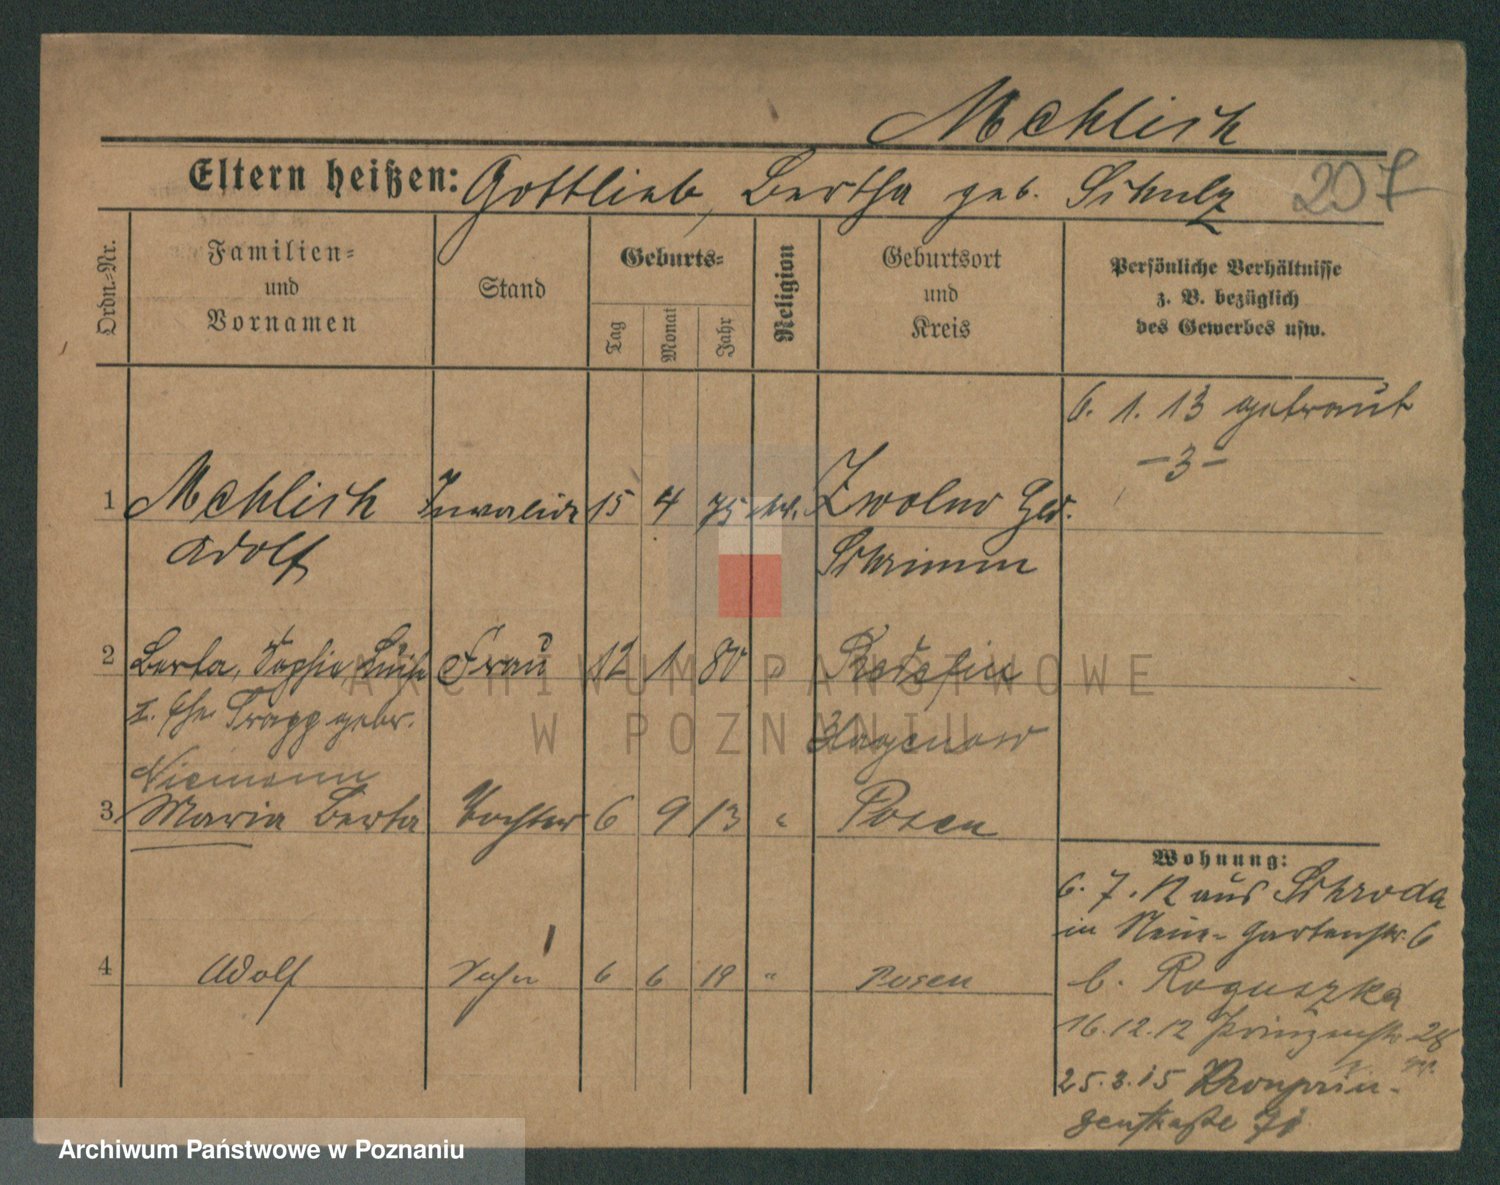 Mehlisch
Eltern heißen: Gottlieb, Bertha geb. Schulz 207
Ordn.-Nr.
Familien-
und
Vornamen
Stand
Geburts-
Tag
Monat
Jahr
Religion
Geburtsort
und
Kreis
Persönliche Verhältnisse
z. B. bezüglich
des Gewerbes usw.
6. 1. 13 getraut
-3-
1 Mehlisch Invalide 15 4 75 Zwolno
Adolf Schrimm
2 Berta, Sophie, Luise Frau 12 1 80 " Redefin
z. Ehe Trapp gebr. Hagenow
Niemann
3 Maria Berta Tochter 6 9 13 " Posen
Wohnung:
6. 7. 12 aus Schroda
in Neue-Gartenstr. 6
4 Adolf Sohn 6 6 19 " Posen
b. Roguszka
16.12.12 Prinzenstr. 28
25.3.15 Kronprin-
zenstraße
ARCHIWUM PAŃSTWOWE
W POZNANIU
Archiwum Państwowe w Poznaniu